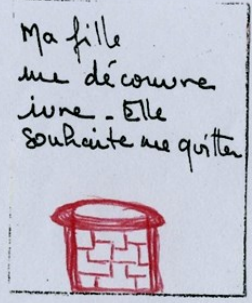 Ma fille
me découvre
ivre. Elle
souhaite me quitter